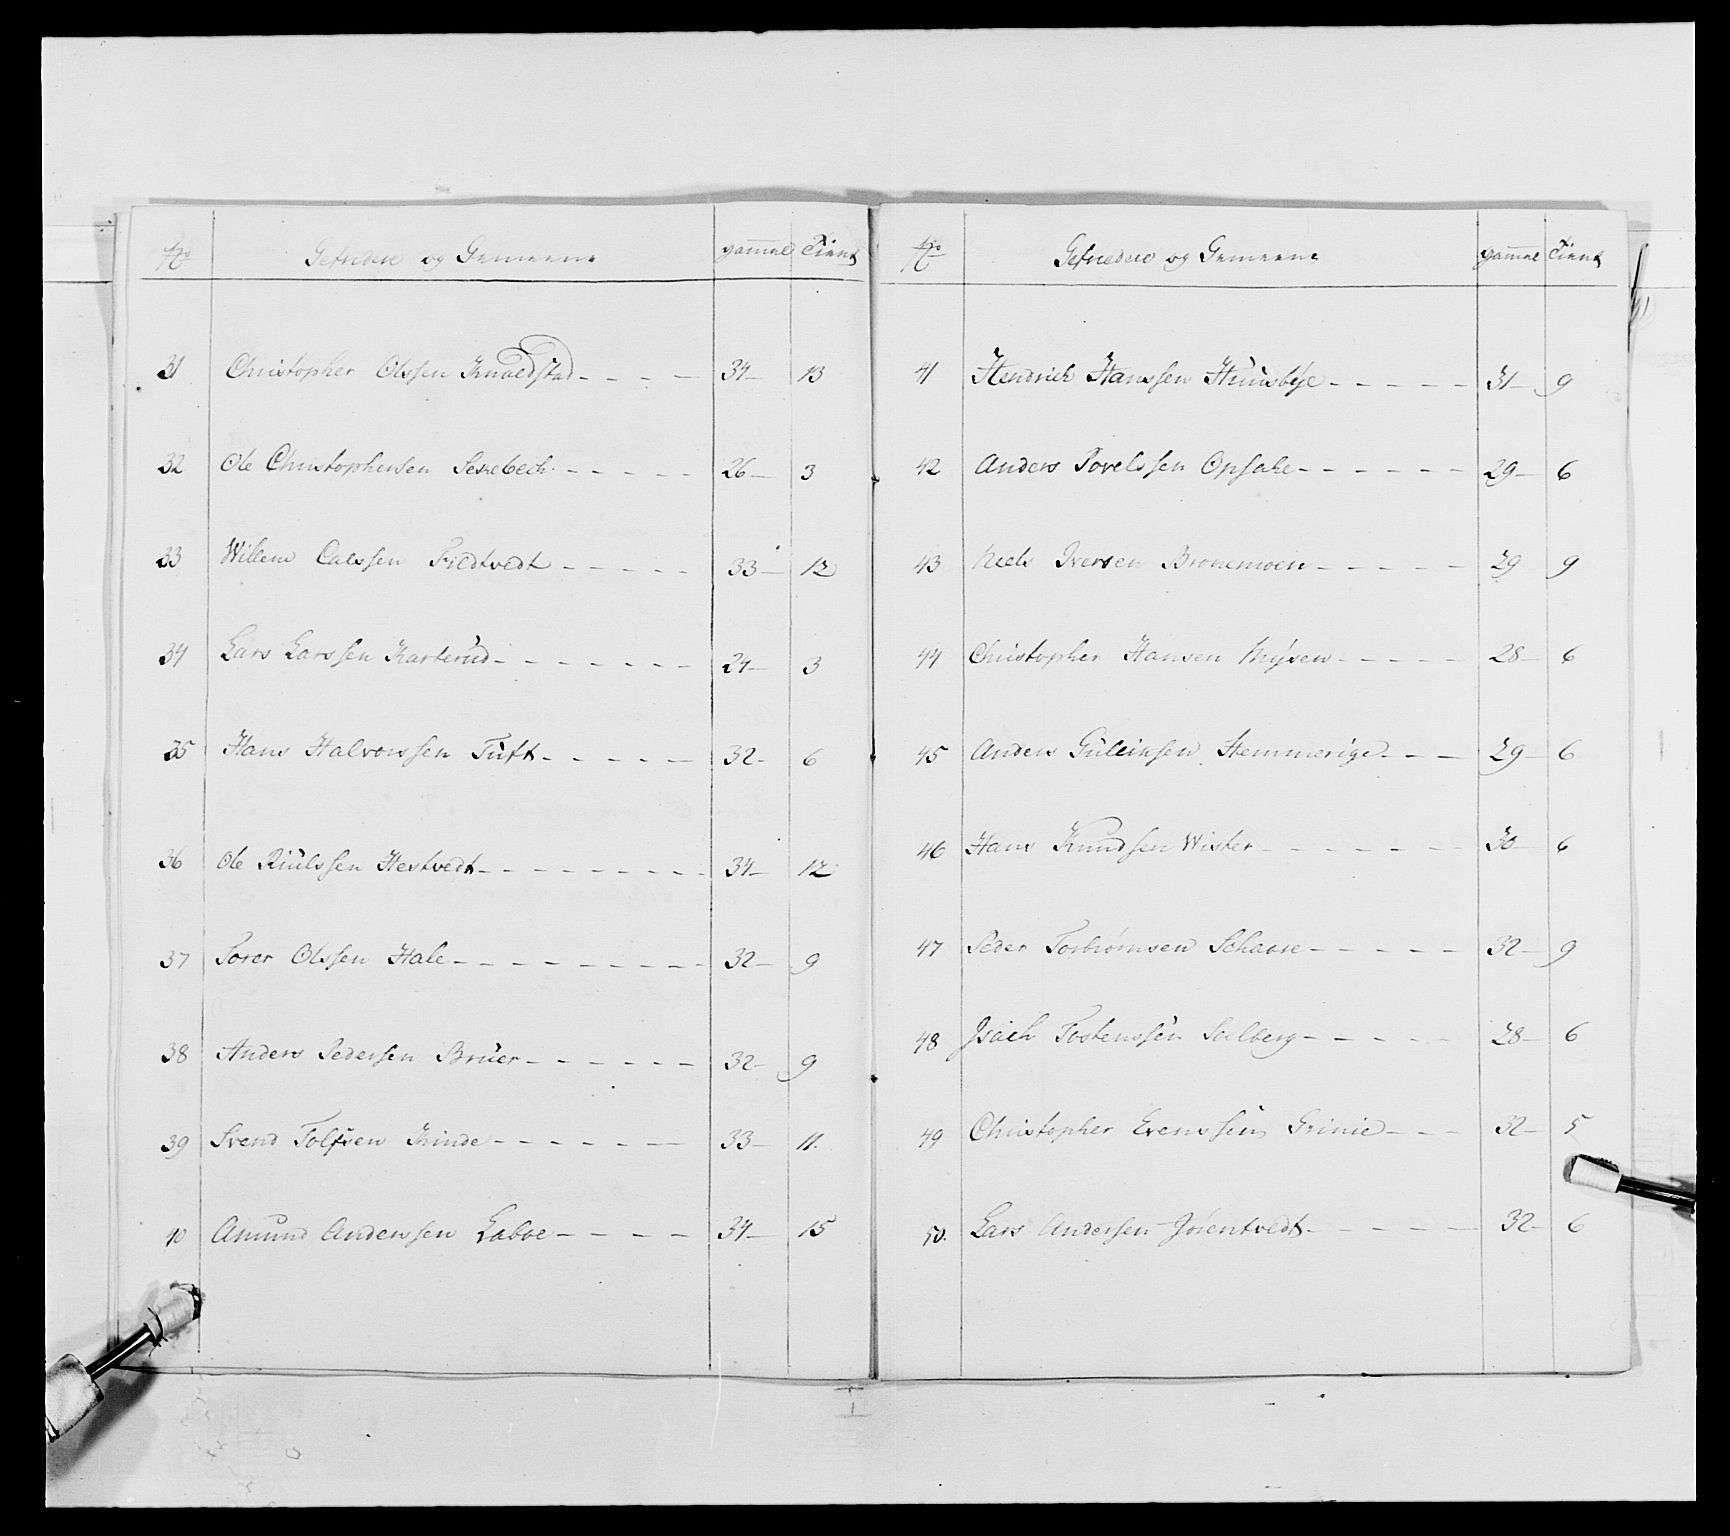 No Gefriedere og Gemeene gammel Tient
31 Christopher Olssen Knaedstad 34 13
32 Ole Christophersen Seszebech 26 3
33 Willem Calssen Fiedtvedt 33 12
34 Lars Larssen Karterud 24 3
35 Hans Halvorssen Tuft 32 6
36 Ole Riulssen Hestvedt 34 12
37 Torer Olssen Hale 32 9
38 Anders Pedersen Bruer 32 9
39 Svend Tolfsen Kinde 33 11.
40 Amund Anderssen Laboe 34 15
No Gefriedere og Gemeene gammel Tient
41 Hendrich Hanssen Huusbÿe 31 9
42 Anders Povelssen Opsahe 29 6
43 Neels Iversen Bronemoen 29 9
44 Christopher Hansen Mÿsen 28 6
45 Anders Guleinsen Hemmerige 29 6
46 Hans Knudsen Wister 30 6
47 Peder Torbiørnsen Schaare 32 9
48 Isach Tostenssen Solberg 28 6
49 Christopher Evenssen Grinie 32 5
50. Lars Andersen Jørentvedt 32 6